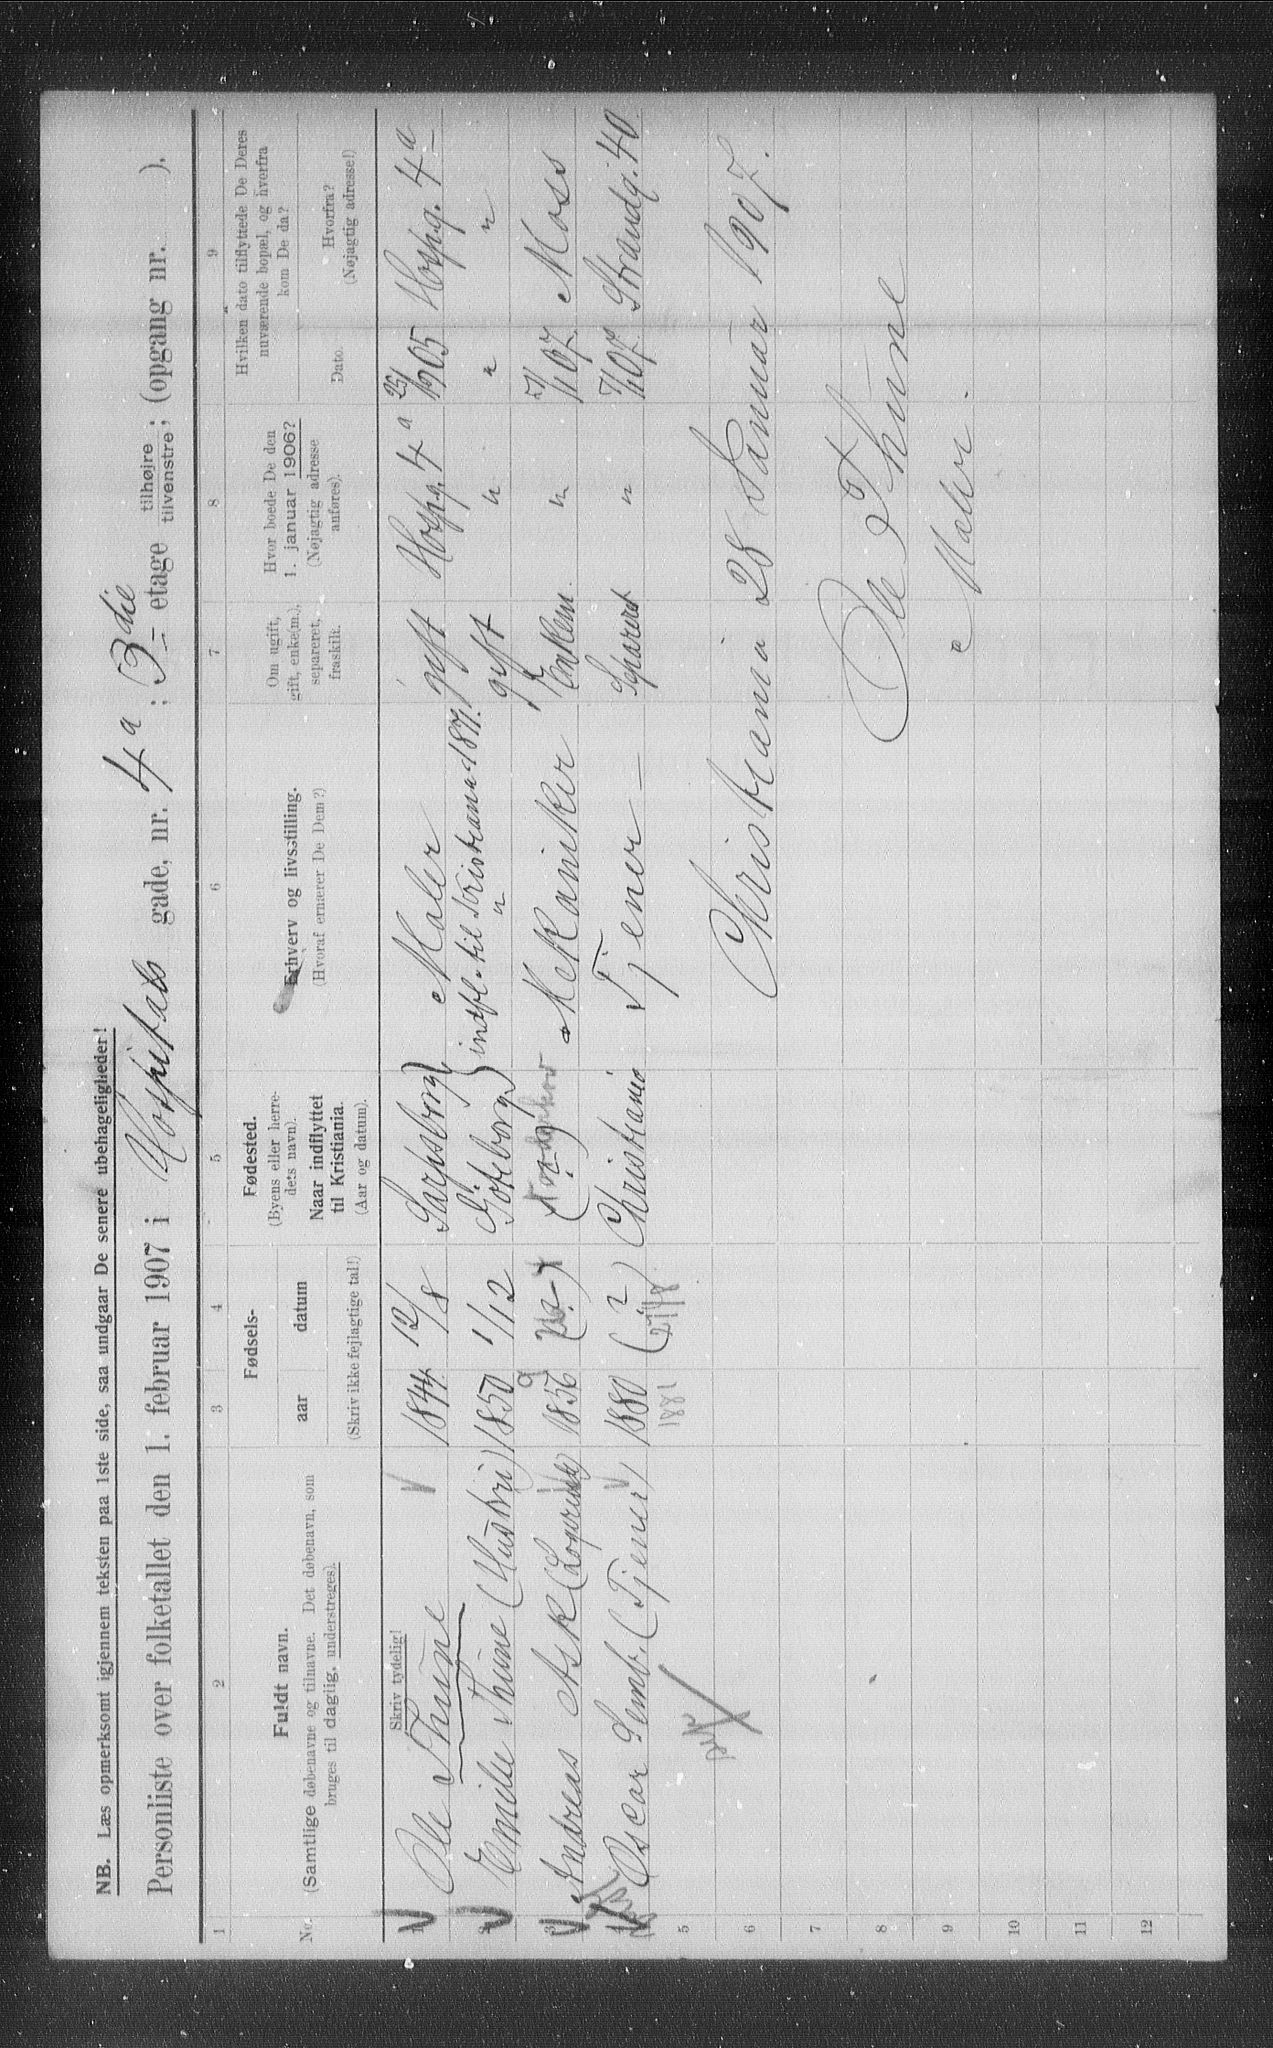 NB. Læs opmerksomt igjennem teksten paa 1ste side, saa undgaar De senere ubehageligheder!
Personliste over folketallet den 1. februar 1907 i Hospitals gade, nr. 4 a ; 3 die etage tilhøjre tilvenstre; (opgang nr. ).
1 2 3 4 5 6 7 8 9
No.
Fuldt navn.
(Samtlige døbenavne og tilnavne. Det døbenavn, som
bruges til daglig, understreges).
Skriv tydelig!
Fødsels-
aar datum
(Skriv ikke fejlagtige tal!)
Fødested.
(Byens eller herre-
dets navn).
Naar indflyttet
til Kristiania.
(Aar og datum).
Erhverv og livsstilling.
(Hvoraf ernærer De Dem?)
Om ugift,
gift, enke(m.),
separeret,
fraskilt.
Hvor boede De den
1. januar 1906?
(Nøjagtig adresse
anføres).
Hvilken dato tilflyttede De Deres
nuværende bopæl, og hvorfra
kom De da?
Dato.
Hvorfra?
(Nøjagtig adresse!)
1 Ole Thüne 1844 12/8 Sarpsborg Maler gift Hospg. 4 a 05 Hospg. 4 a
indfl. til Kristiania 1871.
2 Emilie Thüne (Hustru) 1850 1/12 Göteborg " gift " " "
3 Andreas Ask 1856 9 Mekaniker Enkem. " 07 Moss
4 Oscar Semb. (Tjener) 1880 (?) Christiania Tjener — Separeret " 07 Strandg. 40
1881 27/8
5
Christiania 28 Januar 1907.
6
7
Ole Thüne
8
Maler.
9
10
11
12